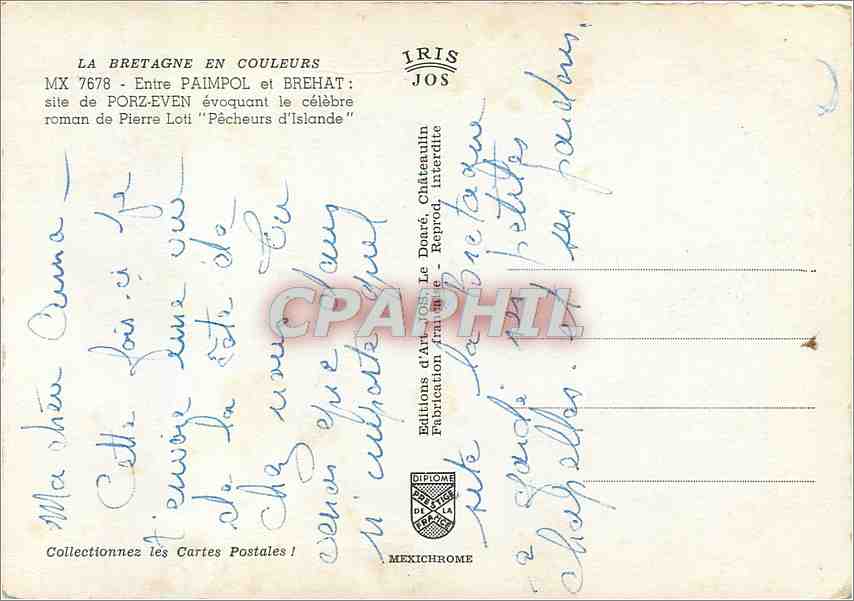 LA BRETAGNE EN COULEURS
MX 7678 - Entre PAIMPOL et BREHAT :
site de PORZ-EVEN évoquant le célèbre
roman de Pierre Loti "Pêcheurs d'Islande"
IRIS
JOS
Ma chère Anna -
Cette fois-ci je
t'envoie une vue
de la côte de
chez nous. Tu
verras que dans
n'importe quel
site la Bretagne
a gardé ses petites
chapelles. et ses pardons.
Editions d'Art JOS, Le Doaré, Châteaulin
Fabrication française - Reprod. interdite
CPAPHIL
DIPLOME
PRESTIGE
DE LA
FRANCE
Collectionnez les Cartes Postales !
MEXICHROME